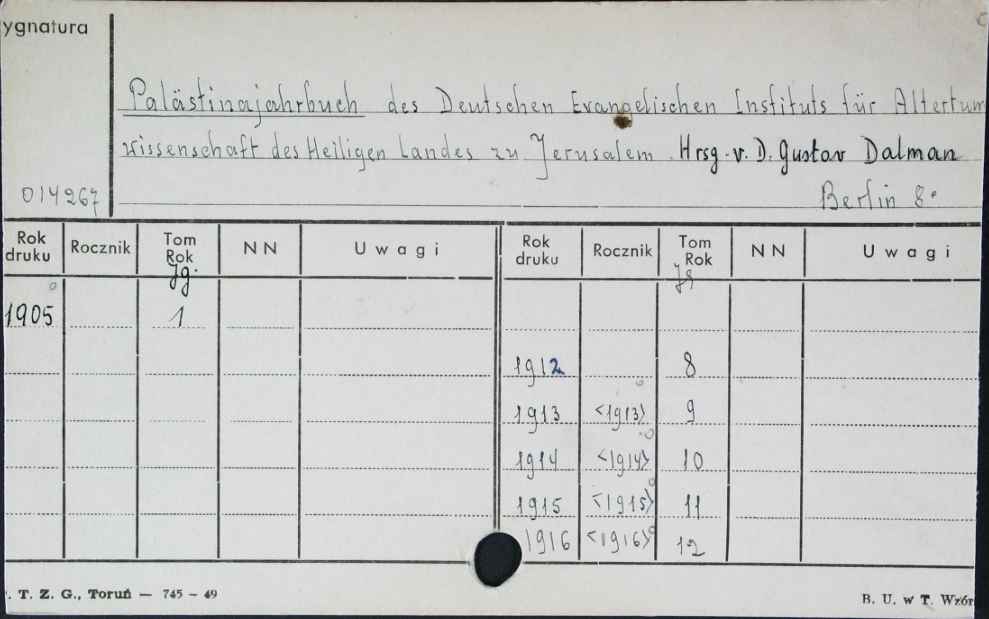 ygnatura
Palästinajahrbuch des Deutschen Evangelischen Instituts für Altertum
wissenschaft des Heiligen Landes zu Jerusalem. Hrsg. v. D. Gustav Dalman
014267
Berlin 8°
Rok druku Rocznik Tom Rok NN Uwagi Rok druku Rocznik Tom Rok NN Uwagi
Jg. Jg
1905 1
1912 8
1913 <1913> 9
1914 <1914> 10
1915 <1915> 11
1916 <1916> 12
. T. Z. G., Toruń — 745 – 49 B. U. w T. Wzór